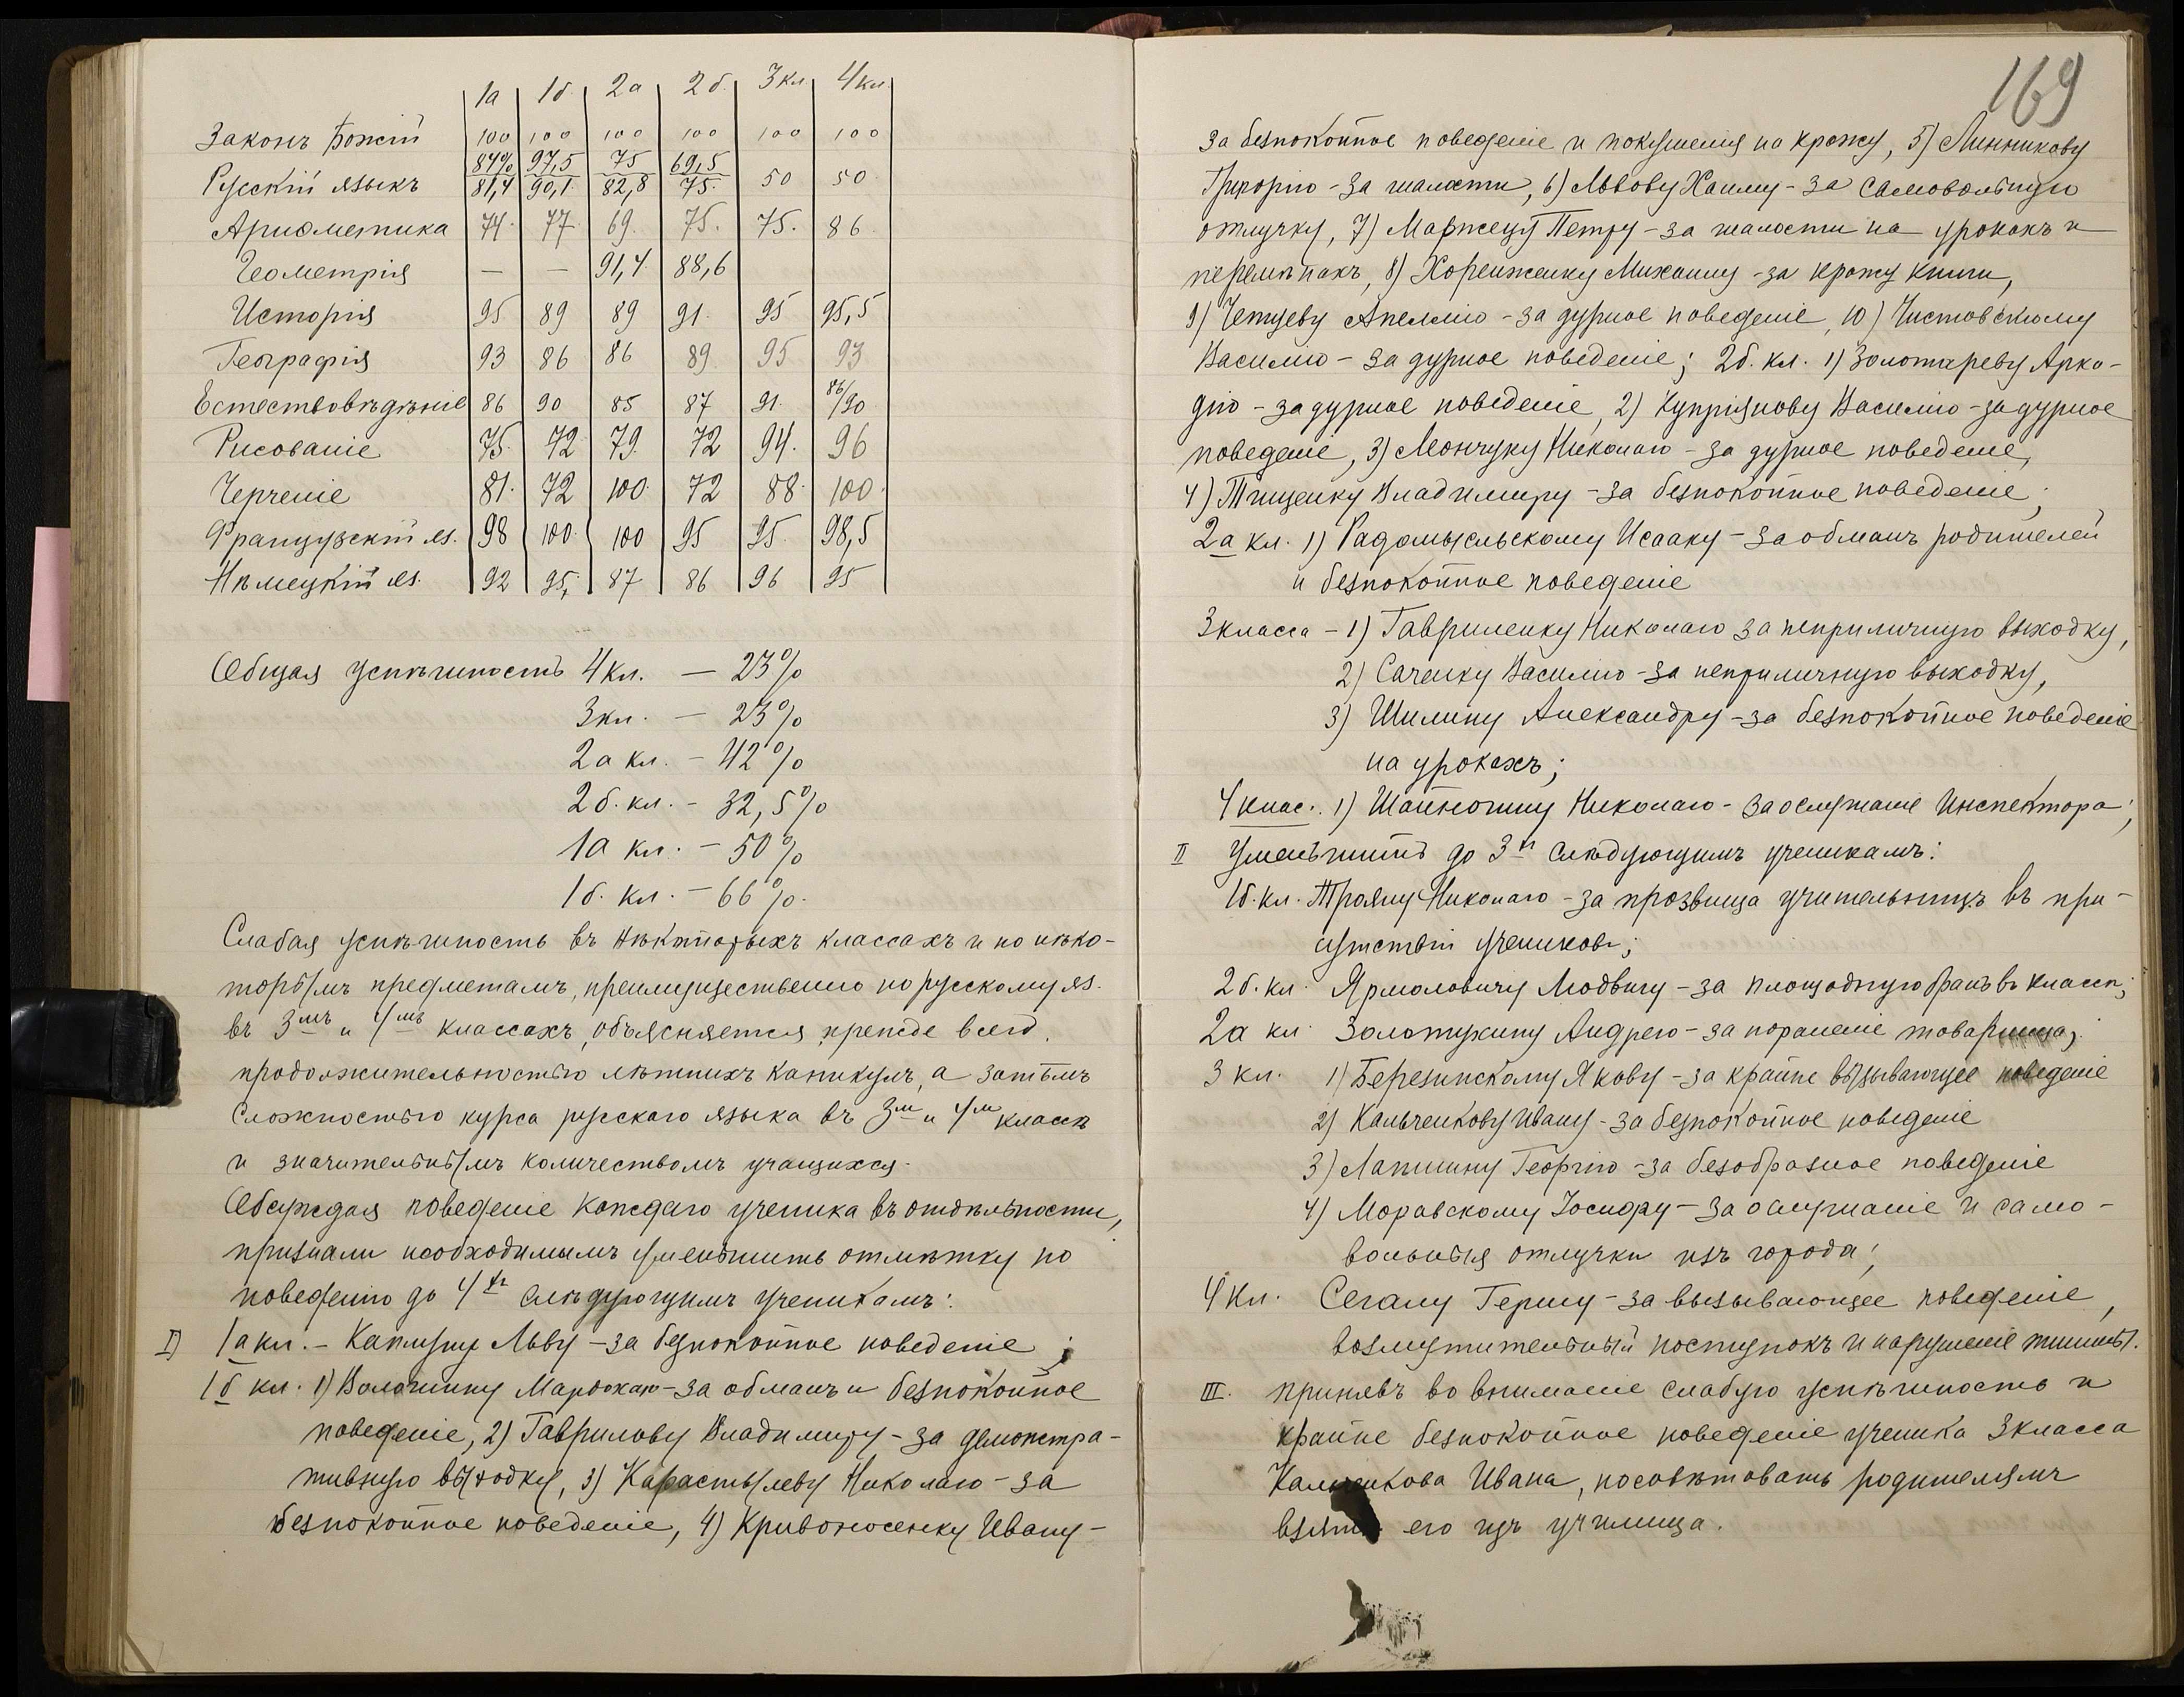 1а 1б. 2а 2б. 3кл. 4кл.
Законъ Божій 100 100 100 100 100 100
84% 97,5 75 69,5
Русскій языкъ 81,4 90,1 82,8 75. 50 50
Ариѳметика 74. 77 69. 75. 75. 86.
Геометрія — — 91,4 88,6
Исторія 95 89 89 91. 95 95,5
Географія 93 86 86 89 95 93
Естествовѣдѣніе 86 90 85 87 91. 86/90
Рисованіе 75. 72 79. 72 94. 96
Черченіе 81. 72 100. 72 88. 100.
Французскій яз. 98 100. 100 95 95. 98,5
Нѣмецкій яз. 92 95, 87 86 96 95
Общая успѣшность 4кл. — 23%
3кл. — 23%
2а кл. — 42%
2б. кл. — 32,5%
1а кл. — 50%
1б. кл. — 66%.
Слабая успѣшность въ нѣкоторыхъ классахъ и по нѣко-
торымъ предметамъ, преимущественно по русскому яз.
въ 3мъ и 4мъ классахъ, объясняется прежде всего
продолжительностью лѣтнихъ каникулъ, а затѣмъ
сложностью курса русскаго языка въ 3м и 4м классѣ
и значительнымъ количествомъ учащихся.
Обсуждая поведеніе каждаго ученика въ отдѣльности,
признали необходимымъ уменьшить отмѣтку по
поведенію до 4хъ слѣдующимъ ученикамъ:
I) 1а кл. – Льву – за безпокойное поведеніе;
1б кл. 1) Волошину Мардохаю – за обманъ и безпокойное
поведеніе, 2) Гаврилову Владимиру – за демонстра-
тивную выходку, 3) Карастылеву Николаю – за
безпокойное поведеніе, 4) Кривоносенку Ивану –
169
за безпокойное поведеніе и покушенія на кражу, 5) Линникову
Григорію – за шалости, 6) Львову Хаиму – за самовольную
отлучку, 7) Петру – за шалости на урокахъ и
перемѣнахъ, 8) Хоренженку Михаилу – за кражу книги,
9) Апеллію – за дурное поведеніе, 10) Чистовскому
Василію – за дурное поведеніе; 2б. кл. 1) Золотареву Арка-
дію – за дурное поведеніе, 2) Купріянову Василію – за дурное
поведеніе, 3) Мончуку Николаю – за дурное поведеніе,
4) Тищенку Владимиру – за безпокойное поведеніе;
2а кл. 1) Радомысльскому Исааку – за обманъ родителей
и безпокойное поведеніе
3 класса – 1) Гавриленку Николаю за неприличную выходку,
2) Саченку Василію – за неприличную выходку,
3) Шилину Александру – за безпокойное поведеніе
на урокахъ;
4 клас. 1) Николаю – за ослушаніе Инспектора;
II Уменьшить до 3хъ слѣдующимъ ученикамъ:
1б. кл. Трояну Николаю – за прозвища учительницъ въ при-
сутствіи учениковъ;
2б. кл. Ярмоловичу Людвигу – за площадную брань въ классѣ;
2а кл. Золотухину Андрею – за пораненіе товарища;
3 кл. 1) Березинскому Якову – за крайне вызывающее поведеніе
2) Кальченкову Ивану – за безпокойное поведеніе
3) Лапшину Георгію – за безобразное поведеніе
4) Моравскому Іосифу – за ослушаніе и само-
вольныя отлучки изъ города;
4 кл. Сегалу Гершу – за вызывающее поведеніе,
возмутительный поступокъ и нарушеніе тишины.
III. принявъ во вниманіе слабую успѣшность и
крайне безпокойное поведеніе ученика 3 класса
Кальченкова Ивана, посовѣтовать родителямъ
взять его изъ училища.